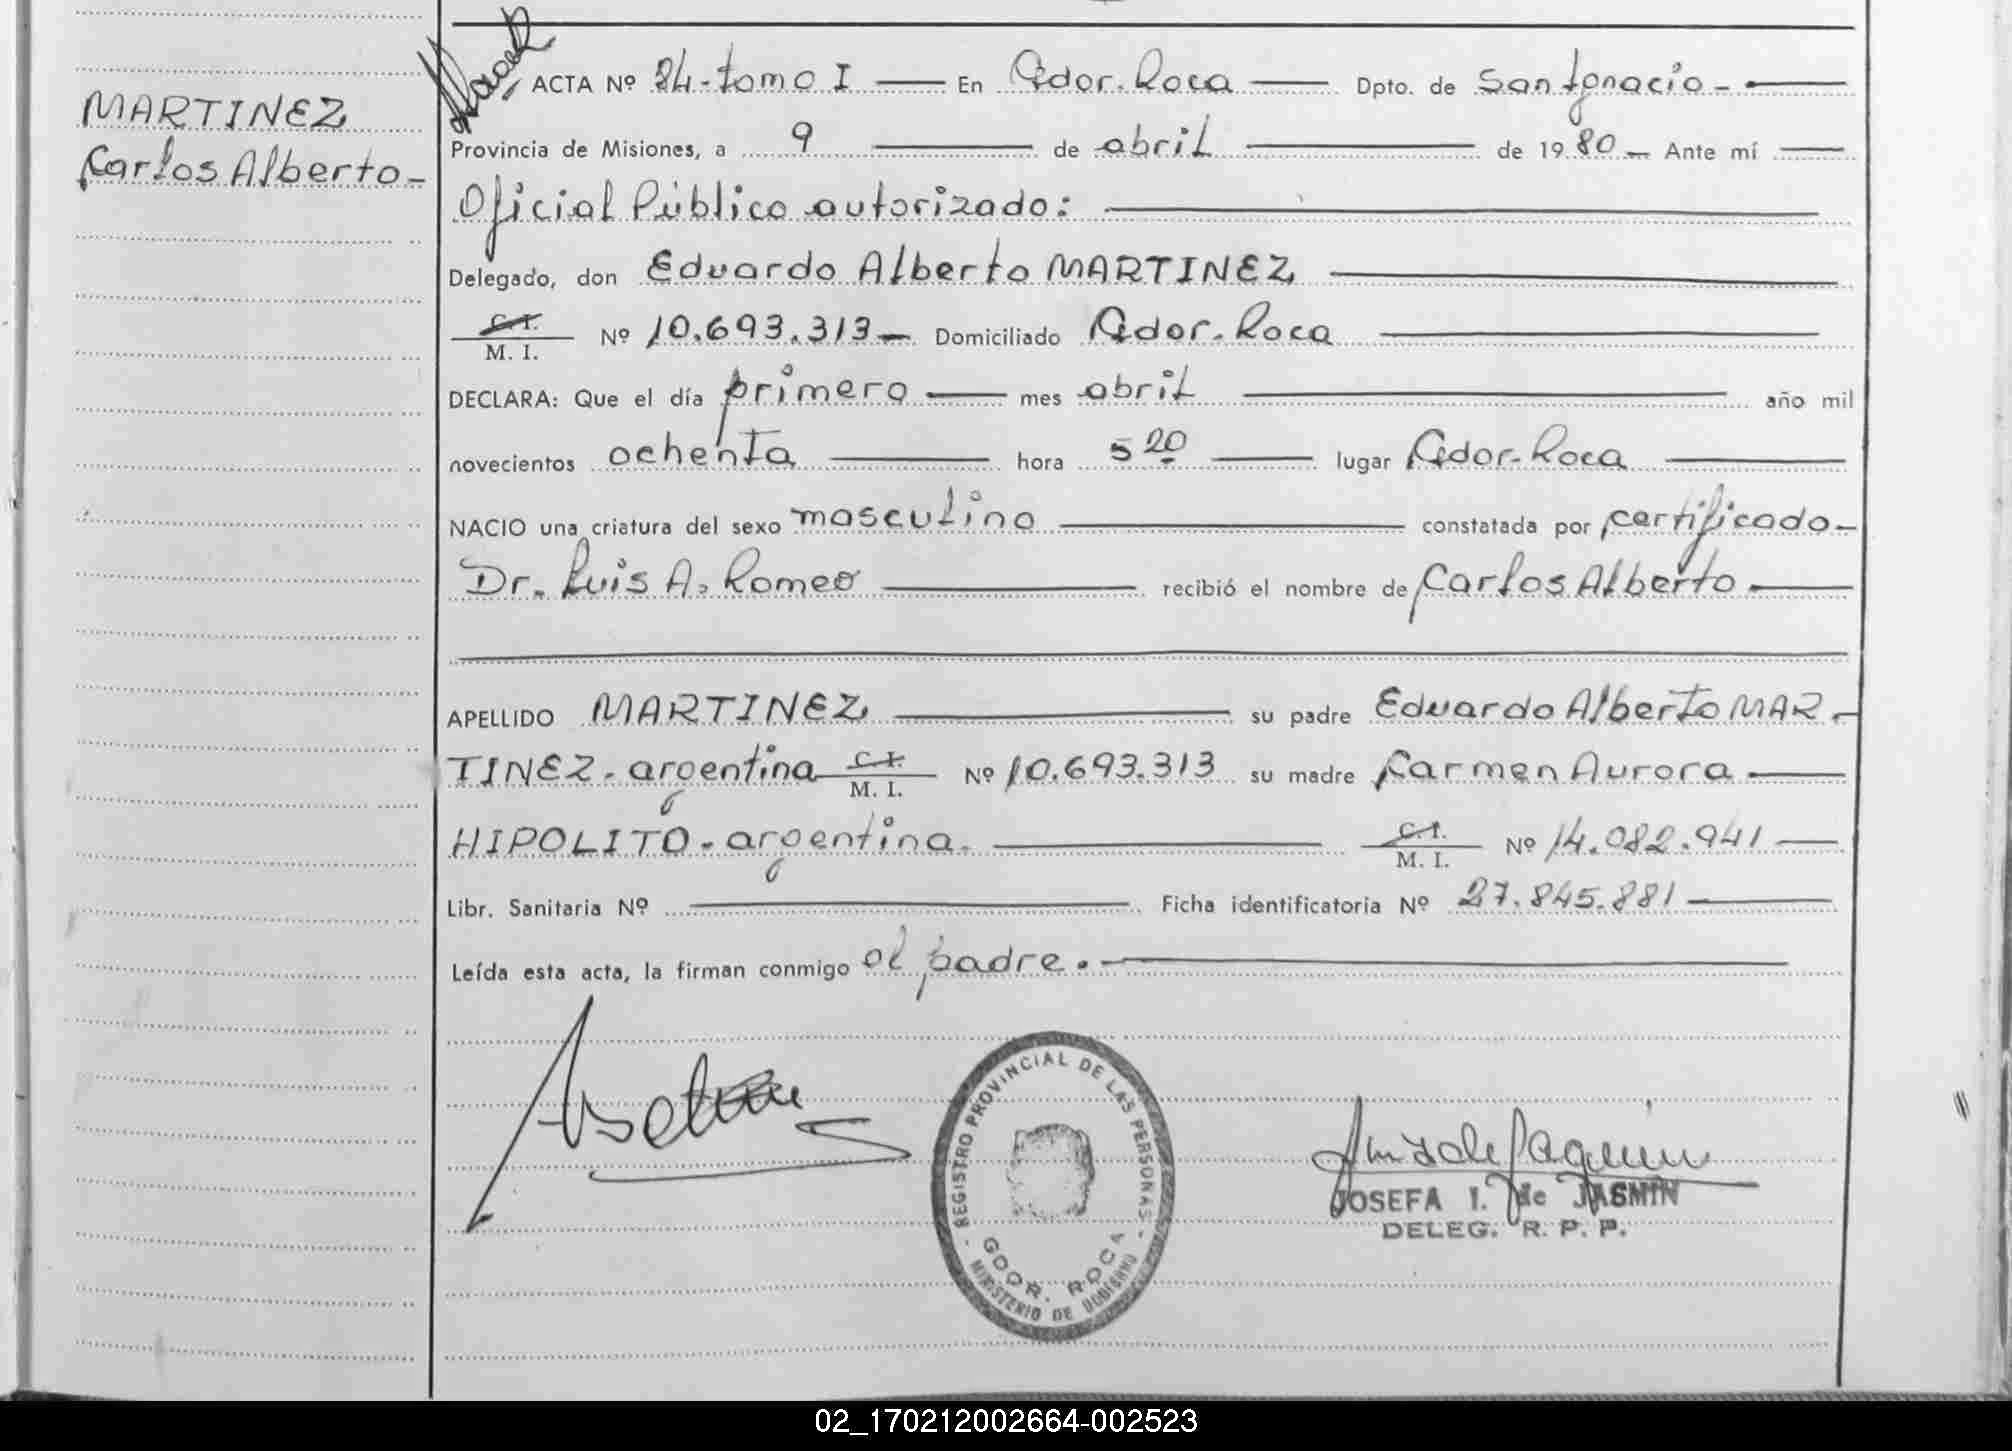 MARTINEZ
Carlos Alberto -
ACTA Nº 84 - tomo I — En Gdor. Roca — Dpto. de San Ignacio -
Provincia de Misiones, a 9 de abril de 1980 - Ante mí
Oficial Público autorizado:
Delegado, don Eduardo Alberto MARTINEZ
C. I.
M. I. Nº 10.693.313 - Domiciliado Gdor. Roca
DECLARA: Que el día primero mes abril año mil
novecientos ochenta hora 5 20 lugar Gdor. Roca
NACIO una criatura del sexo masculino constatada por certificado -
Dr. Luis A. Romeo recibió el nombre de Carlos Alberto
APELLIDO MARTINEZ su padre Eduardo Alberto MAR-
TINEZ - argentina C. I. M. I. Nº 10.693.313 su madre Carmen Aurora
HIPOLITO - argentina. C. I. M. I. Nº 14.082.941
Libr. Sanitaria Nº Ficha identificatoria Nº 27.845.881
Leída esta acta, la firman conmigo el padre.
REGISTRO PROVINCIAL DE LAS PERSONAS
GDOR. ROCA
MINISTERIO DE GOBIERNO
JOSEFA I. de JASMIN
DELEG. R. P. P.
02_170212002664-002523